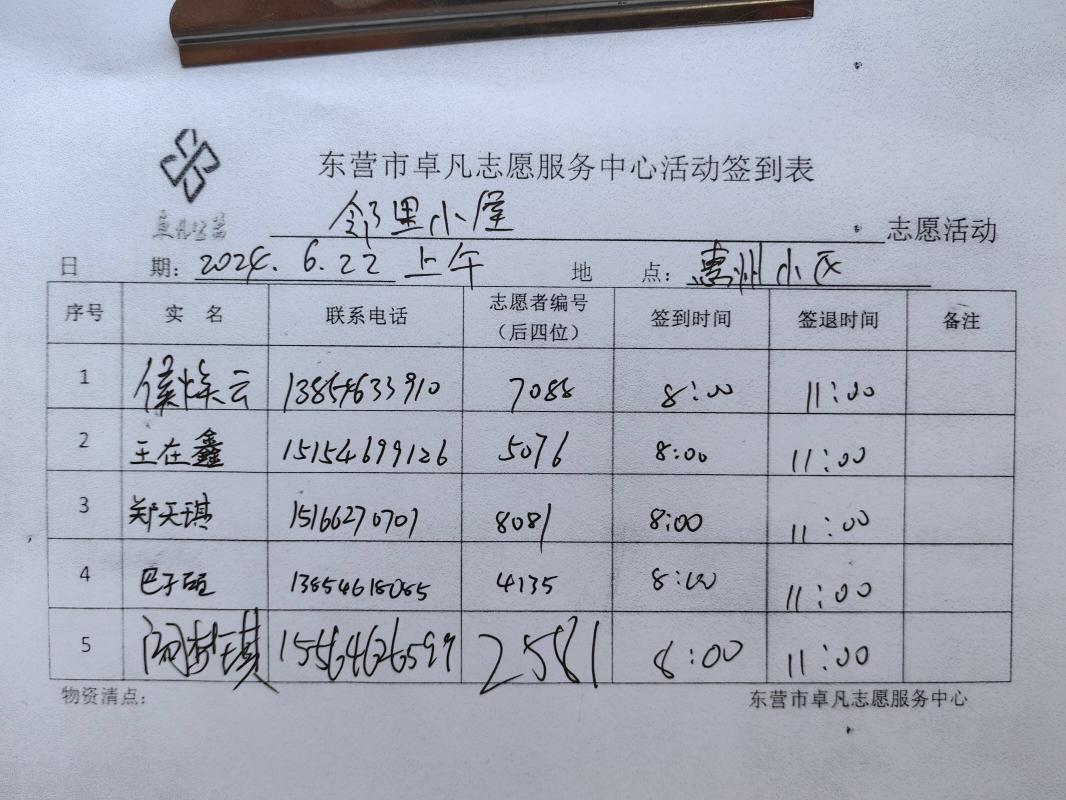 东营市卓凡志愿服务中心活动签到表
邻里小屋 志愿活动
日 期: 2024.6.22 上午 地 点: 惠州小区
序号 实 名 联系电话 志愿者编号（后四位） 签到时间 签退时间 备注
1 侯焕云 13854633910 7088 8:00 11:00
2 王在鑫 15154699126 5076 8:00 11:00
3 郑天琪 15166270701 8081 8:00 11:00
4 巴子 13854618085 4135 8:00 11:00
5 梦琪 2581 8:00 11:00
物资清点: 东营市卓凡志愿服务中心